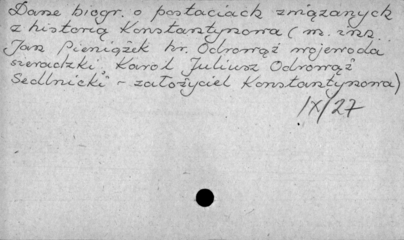 Dane biogr. o postaciach związanych
z historią Konstantynowa (m. inn.
Jan Pieniążek hr. Odrowąż wojewoda
sieradzki, Karol Juliusz Odrowąż
Sedlnicki - założyciel Konstantynowa)
IX/27